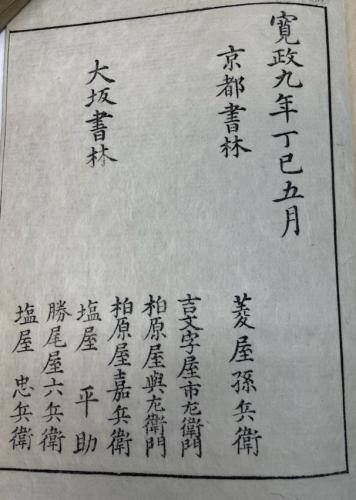 寛政九年丁巳五月
京都書林
菱屋孫兵衛
大坂書林
吉文字屋市左衛門
柏原屋與左衛門
柏原屋嘉兵衛
塩屋平助
勝尾屋六兵衛
塩屋忠兵衛